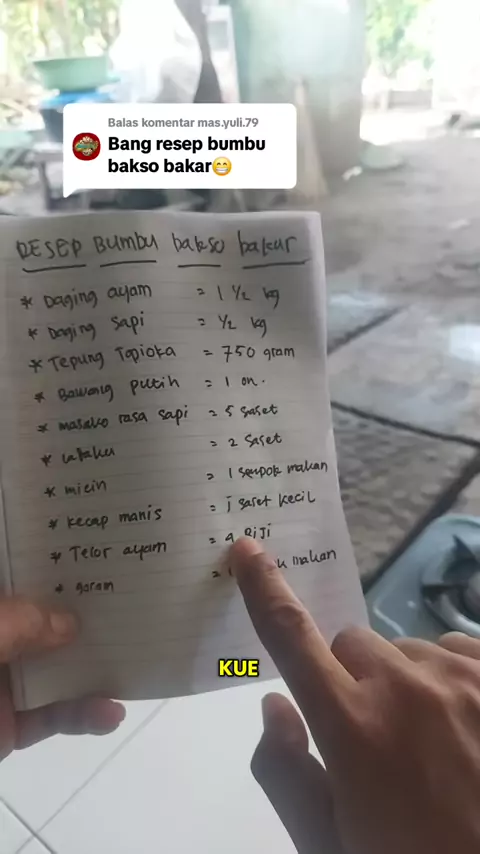 Balas komentar mas.yuli.79
Bang resep bumbu
bakso bakar😁
RESEP BUMBU bakso bakar
* Daging ayam = 1 1/2 kg
* Daging sapi = 1/2 kg
* Tepung Tapioka = 750 gram
* Bawang putih = 1 on.
* masako rasa sapi = 5 saset
* = 2 saset
* micin = 1 sendok makan
* kecap manis = 1 saset kecil
* Telor ayam = 4 BIJI
* garam = 1 makan
KUE